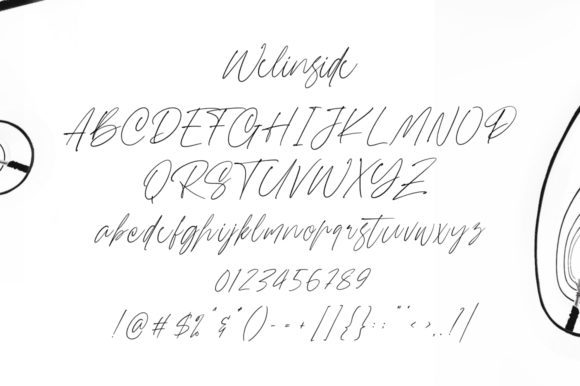 Welinside
ABCDEFGHIJKLMNOP
QRSTUVWXYZ
abcdefghijklmnopqrstuvwxyz
0123456789
!@#$%^&*()-=+[]{}:;"'<>,.?/|